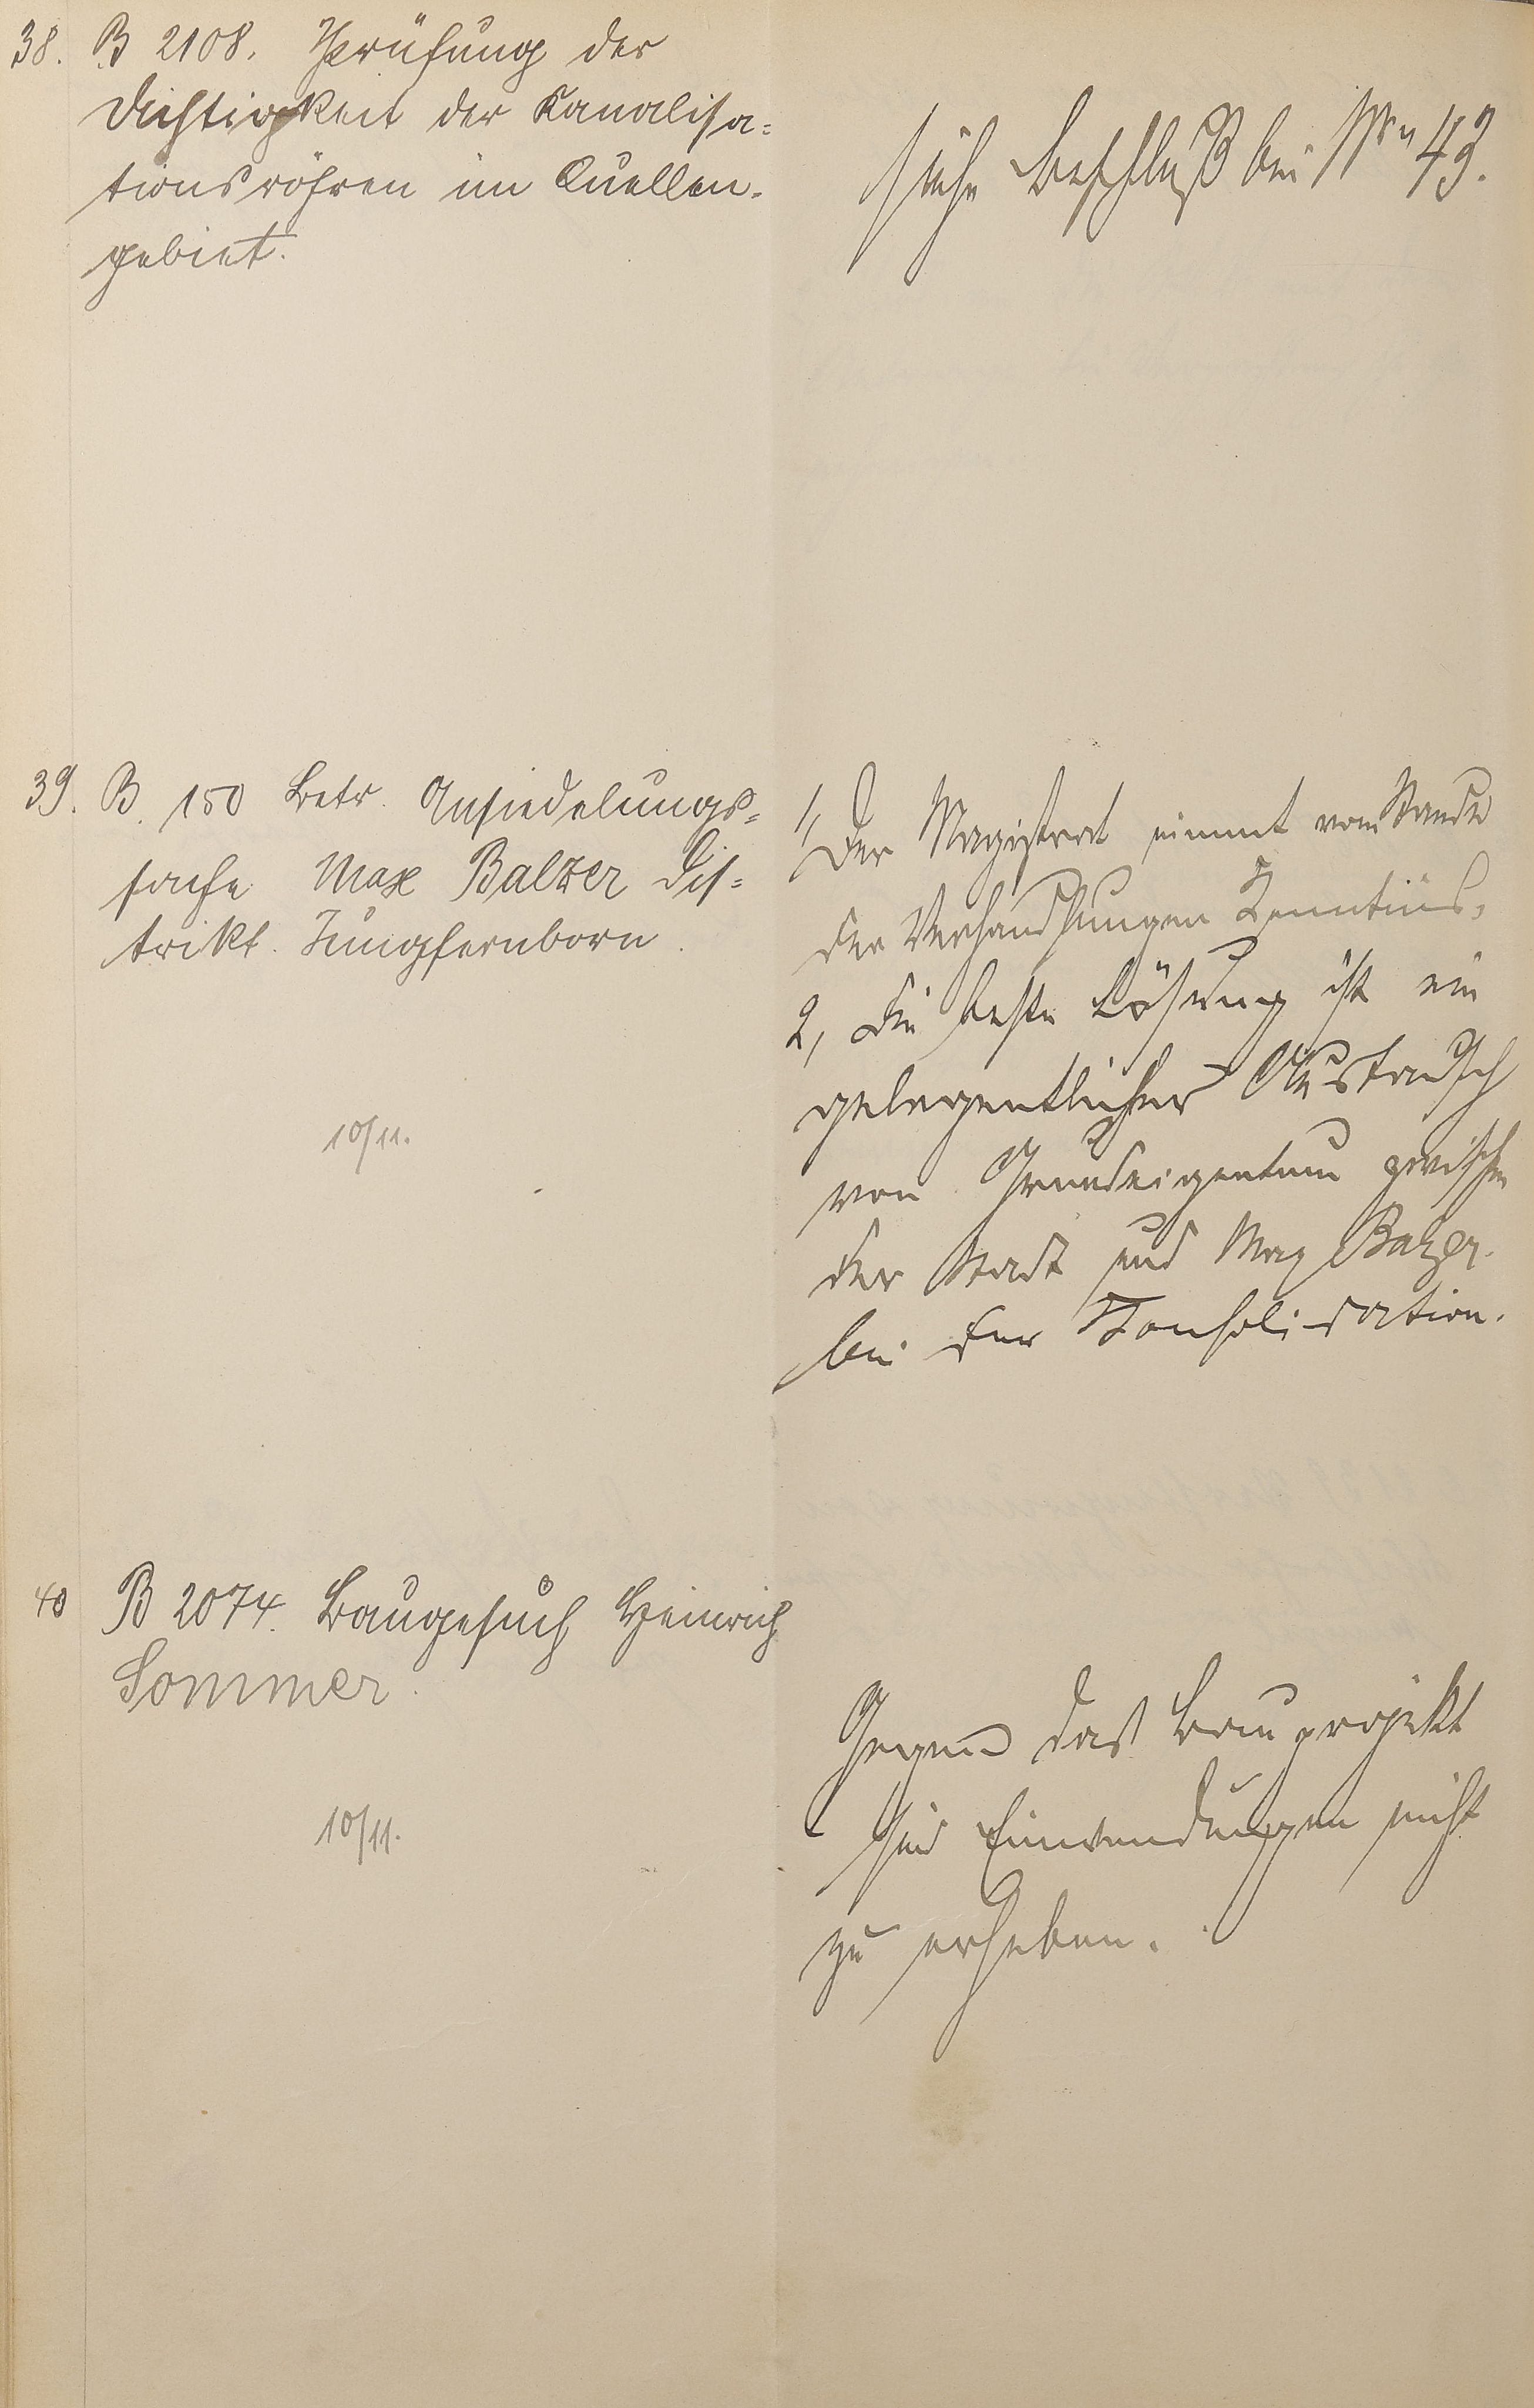 38. B 2108. Prüfung der
Dichtigkeit der Kanalisa-
tionsröhren im Quellen-
gebiet.
siehe Beschluß bei Nrn 43.
39. B. 150 Betr. Ansiedelungs-
sache Max Balzer Dis-
trikt. Jungfernborn.
10/11.
1, Der Magistrat nimmt vom Stande
der Verhandlungen Kenntnis,
2, die beste Lösung ist ein
gelegentlicher Austausch
von Grundeigentum zwischen
der Stadt und Max Balzer.
bei der Konsolidation.
40 B 2074. Baugesuch Heinrich
Sommer.
10/11.
Gegen das Bauprojekt
sind Einwendungen nicht
zu erheben.